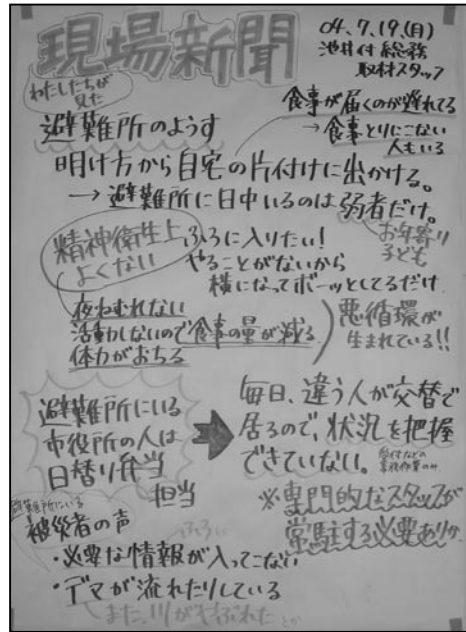 現場新聞
04.7.19.(月)
池井付総務
取材スタッフ
わたしたちが
見た
避難所のようす
食事が届くのが遅れてる
→食事とりにこない
人もいる
明け方から自宅の片付けに出かける。
→避難所に日中いるのは弱者だけ。
お年寄り
子ども
精神衛生上
よくない
ふろに入りたい!
やることがないから
横になってボーッとしてるだけ
夜ねむれない
活動しないので食事の量が減る
体力がおちる
悪循環が
生まれている!!
避難所にいる
市役所の人は
日替り弁当
担当
毎日、違う人が交替で
居るので、状況を把握
できていない。
受付などの
事務作業のみ
※専門的なスタッフが
常駐する必要ありか
避難所にいる
被災者の声
・必要な情報が入ってこない
・デマが流れたりしている
また、川がやぶれたとか